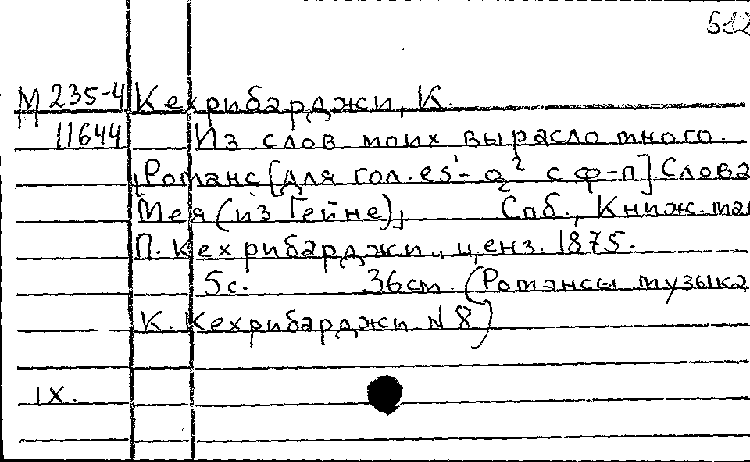 512
М 235-4 Кехрибарджи, К.
11644 Из слов моих выросло много.
Романс [для гол. es¹-g² с ф-п] Слова
Мея (из Гейне),  Спб., Книж. маг
П. Кехрибарджи, ценз. 1875.
5с.  36см (Романсы музыка
К. Кехрибарджи N 8)
IX.